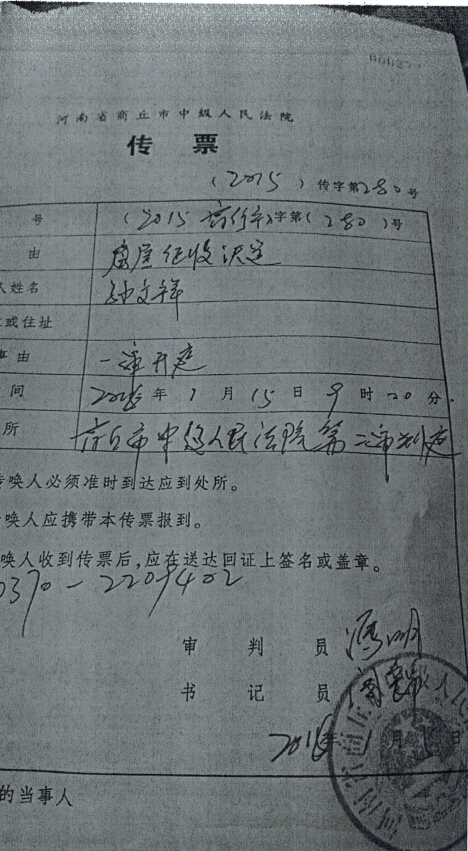 河南省商丘市中级人民法院
传票
（2015）传字第280号
号 （2015 商行初）字第（280）号
由 房屋征收决定
人姓名 孙文祥
或住址
事由 一审开庭
间 2016年1月15日9时20分
所 商丘市中级人民法院第二审判庭
唤人必须准时到达应到处所。
唤人应携带本传票报到。
唤人收到传票后,应在送达回证上签名或盖章。
0370-2209402
审判员
书记员
2016年1月 日
的当事人